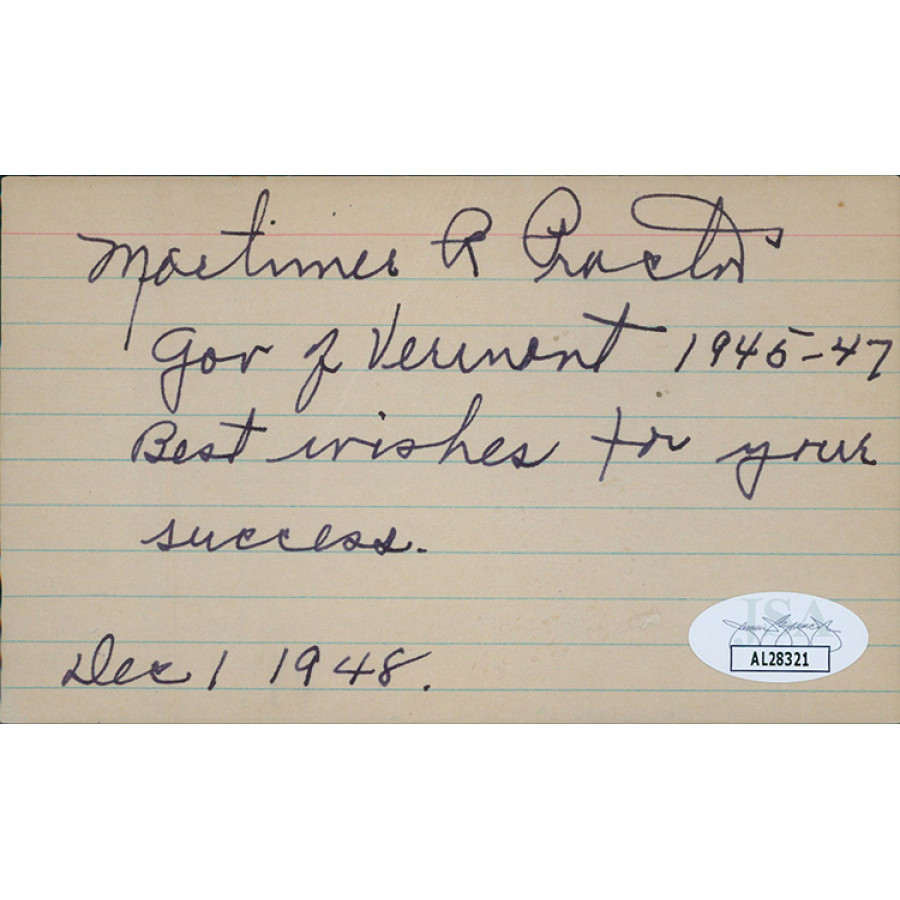 Mortimer R Proctor
Gov of Vermont 1945-47
Best wishes for your
success.
Dec 1 1948.
JSA
AL28321